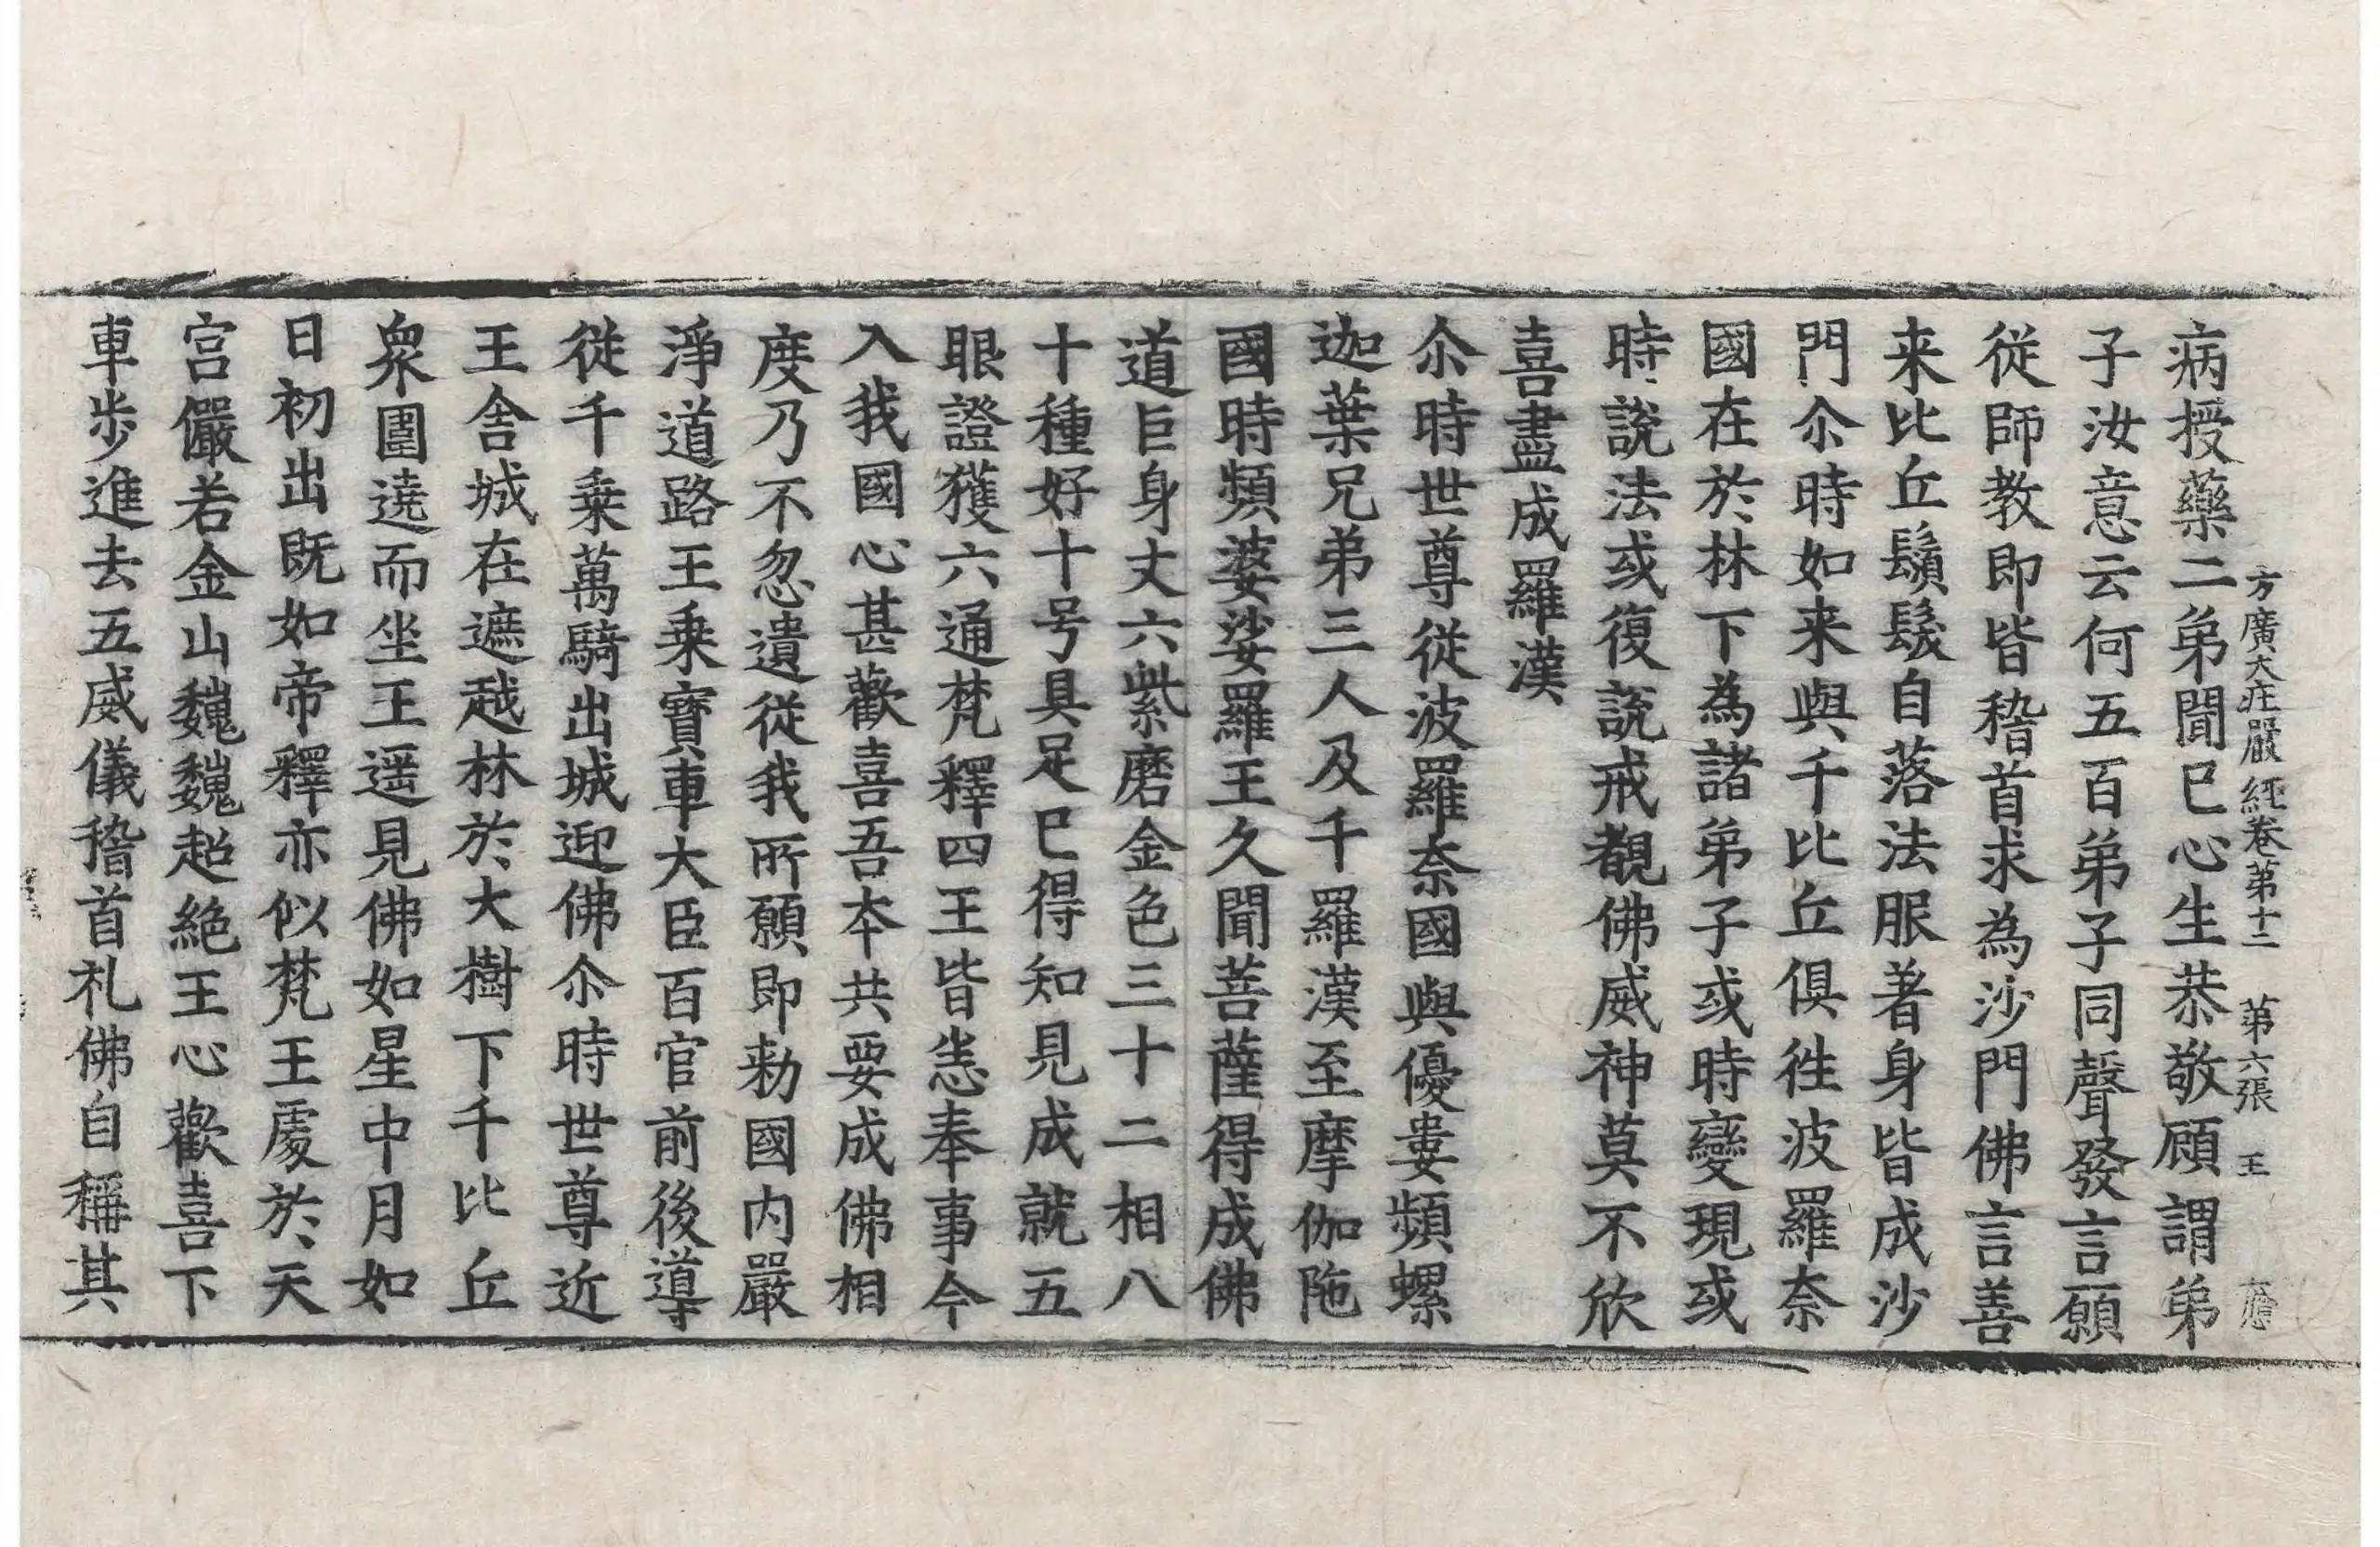 方廣大莊嚴經卷第十二 第六張 王
病授藥二弟聞已心生恭敬顧謂弟
子汝意云何五百弟子同聲發言願
從師教即皆稽首求為沙門佛言善
来比丘鬚髮自落法服著身皆成沙
門尒時如来與千比丘俱徃波羅奈
國在於林下為諸弟子或時變現或
時說法或復說戒覩佛威神莫不欣
喜盡成羅漢
尒時世尊從波羅奈國與優婁頻螺
迦葉兄弟三人及千羅漢至摩伽陁
國時頻婆娑羅王久聞菩薩得成佛
道巨身丈六紫磨金色三十二相八
十種好十号具足已得知見成就五
眼證獲六通梵釋四王皆悉奉事今
入我國心甚歡喜吾本共要成佛相
度乃不忽遺從我所願即勑國內嚴
淨道路王乗寶車大臣百官前後導
從千乗萬騎出城迎佛尒時世尊近
王舍城在遮越林於大樹下千比丘
衆圍遶而坐王遥見佛如星中月如
日初出既如帝釋亦似梵王處於天
宮儼若金山巍巍超絕王心歡喜下
車步進去五威儀稽首礼佛自稱其